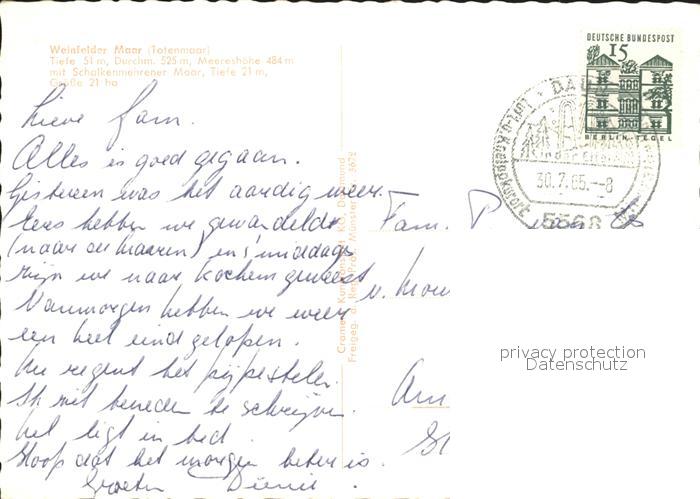 Weinfelder Maar (Totenmaar)
Tiefe 51 m, Durchm. 525 m, Meereshöhe 484 m
mit Schalkenmehrener Maar, Tiefe 21 m,
Größe 21 ha
Lieve fam.
Alles is goed gegaan.
Gisteren was het aardig weer.
Eers hebben we gewandeld
(naar de maaren) en 's middags
zijn we naar Kochem geweest
Vanmorgen hebben we weer
een heel eind gelopen.
Nu regent het pijpestelen.
Ik zit beneden te schrijven.
ligt in bed.
Hoop dat het morgen beter is.
Groeten
Cramers Kunstanstalt KG, Dortmund
Freigeg. d. Reg. Präs. Münster
DEUTSCHE BUNDESPOST
15
BERLIN-TEGEL
DAUN
Luft-u. Kneippkurort
30.7.65.-8
5568
Fam. P
v.
privacy protection
Datenschutz